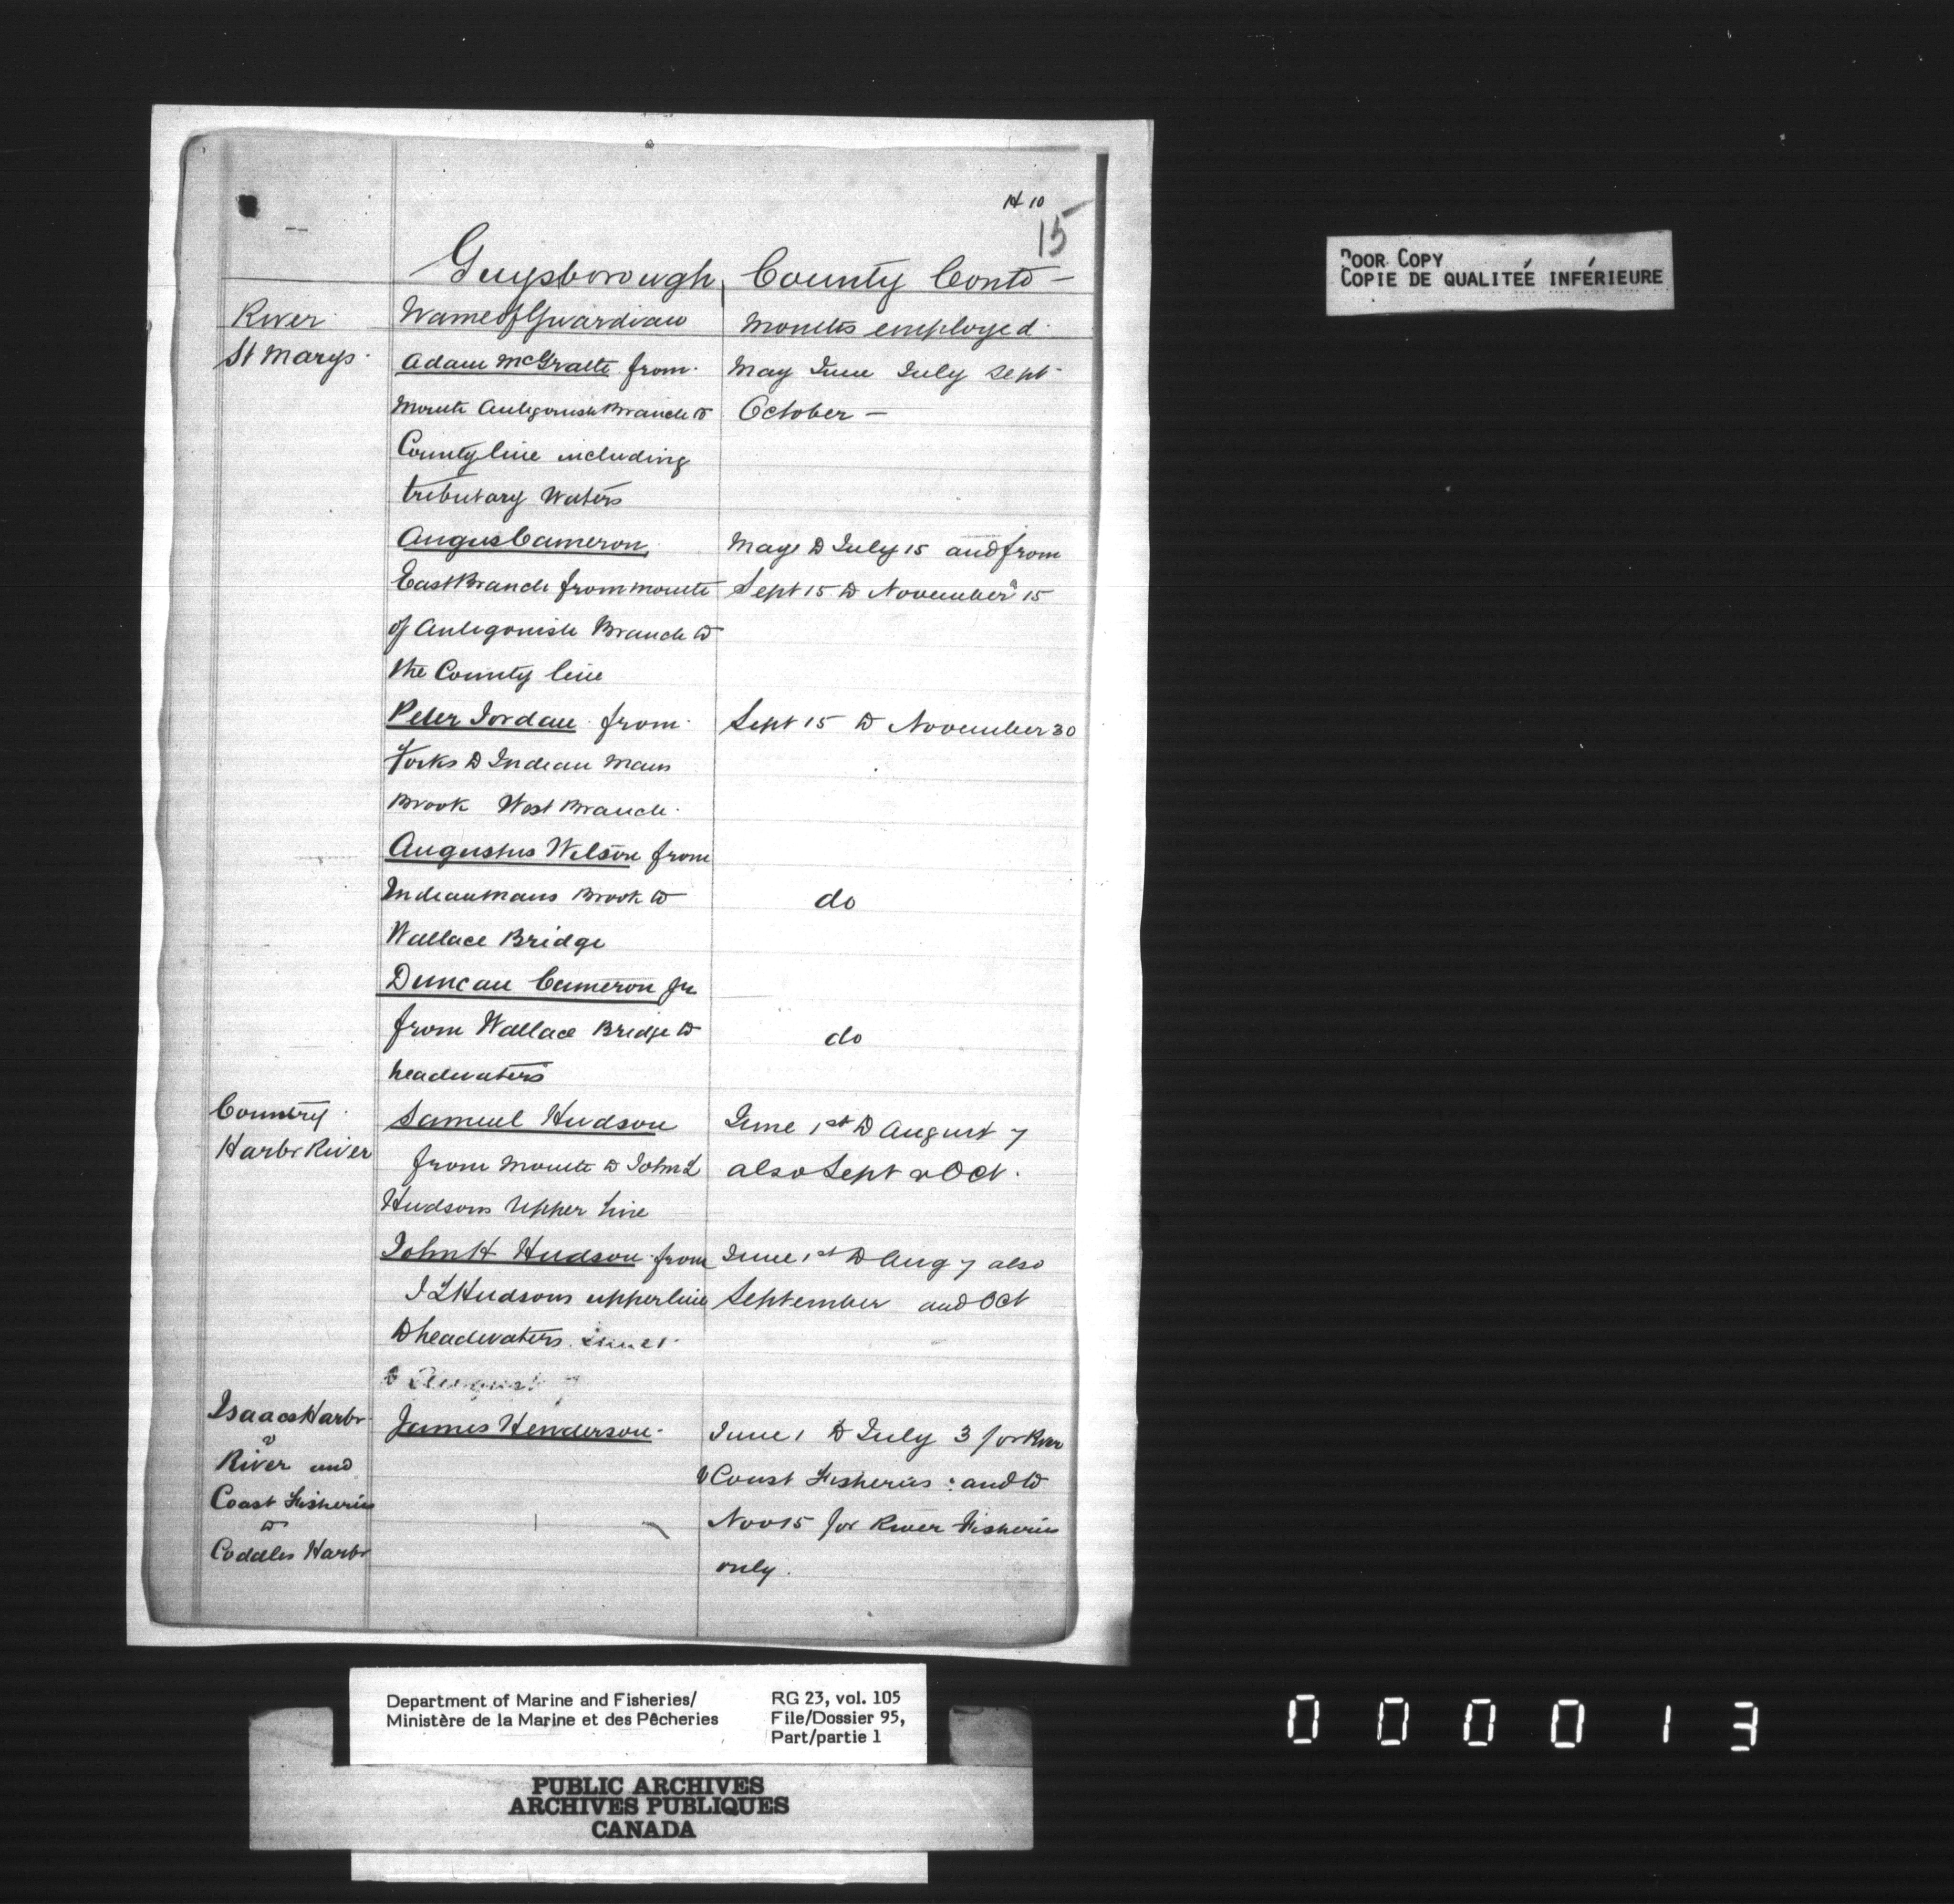 H 10
15
Guysborough County Contd —
River Name of Guardian Months employed
St Marys Adam McGrath from May June July Sept
Mouth Antigonish Branch to October —
County line including
tributary Waters
Angus Cameron May 1 to July 15 and from
East Branch from mouth Sept 15 to November 15
of Antigonish Branch to
the County line
Peter Jordan from Sept 15 to November 30
Forks to Indian Mans
Brook West Branch
Augustus Wilson from
Indian Mans Brook to do
Wallace Bridge
Duncan Cameron Jr
from Wallace Bridge to do
headwaters
Country Samuel Hudson June 1st to August 7
Harbr River from mouth to John L also Sept & Oct.
Hudsons Upper Line
John H Hudson from June 1st to Aug 7 also
J L Hudsons upper line September and Oct
to headwaters June 1
to August 7
Isaacs Harbr James Henderson June 1 to July 3 for River
&
River and & Coast Fisheries : and to
Coast Fisheries Nov 15 for River Fisheries
to
Coddles Harbr only.
POOR COPY
COPIE DE QUALITEÉ INFÉRIEURE
Department of Marine and Fisheries/ RG 23, vol. 105
Ministère de la Marine et des Pêcheries File/Dossier 95,
Part/partie 1
PUBLIC ARCHIVES
ARCHIVES PUBLIQUES
CANADA
000013